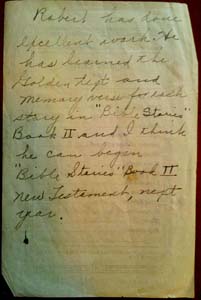 Robert has done
excellent work. He
has learned the
Golden Text and
Memory verse for each
story in "Bible Stories"
Book II and I think
he can begin
"Bible Stories" Book III
New Testament, next
year.